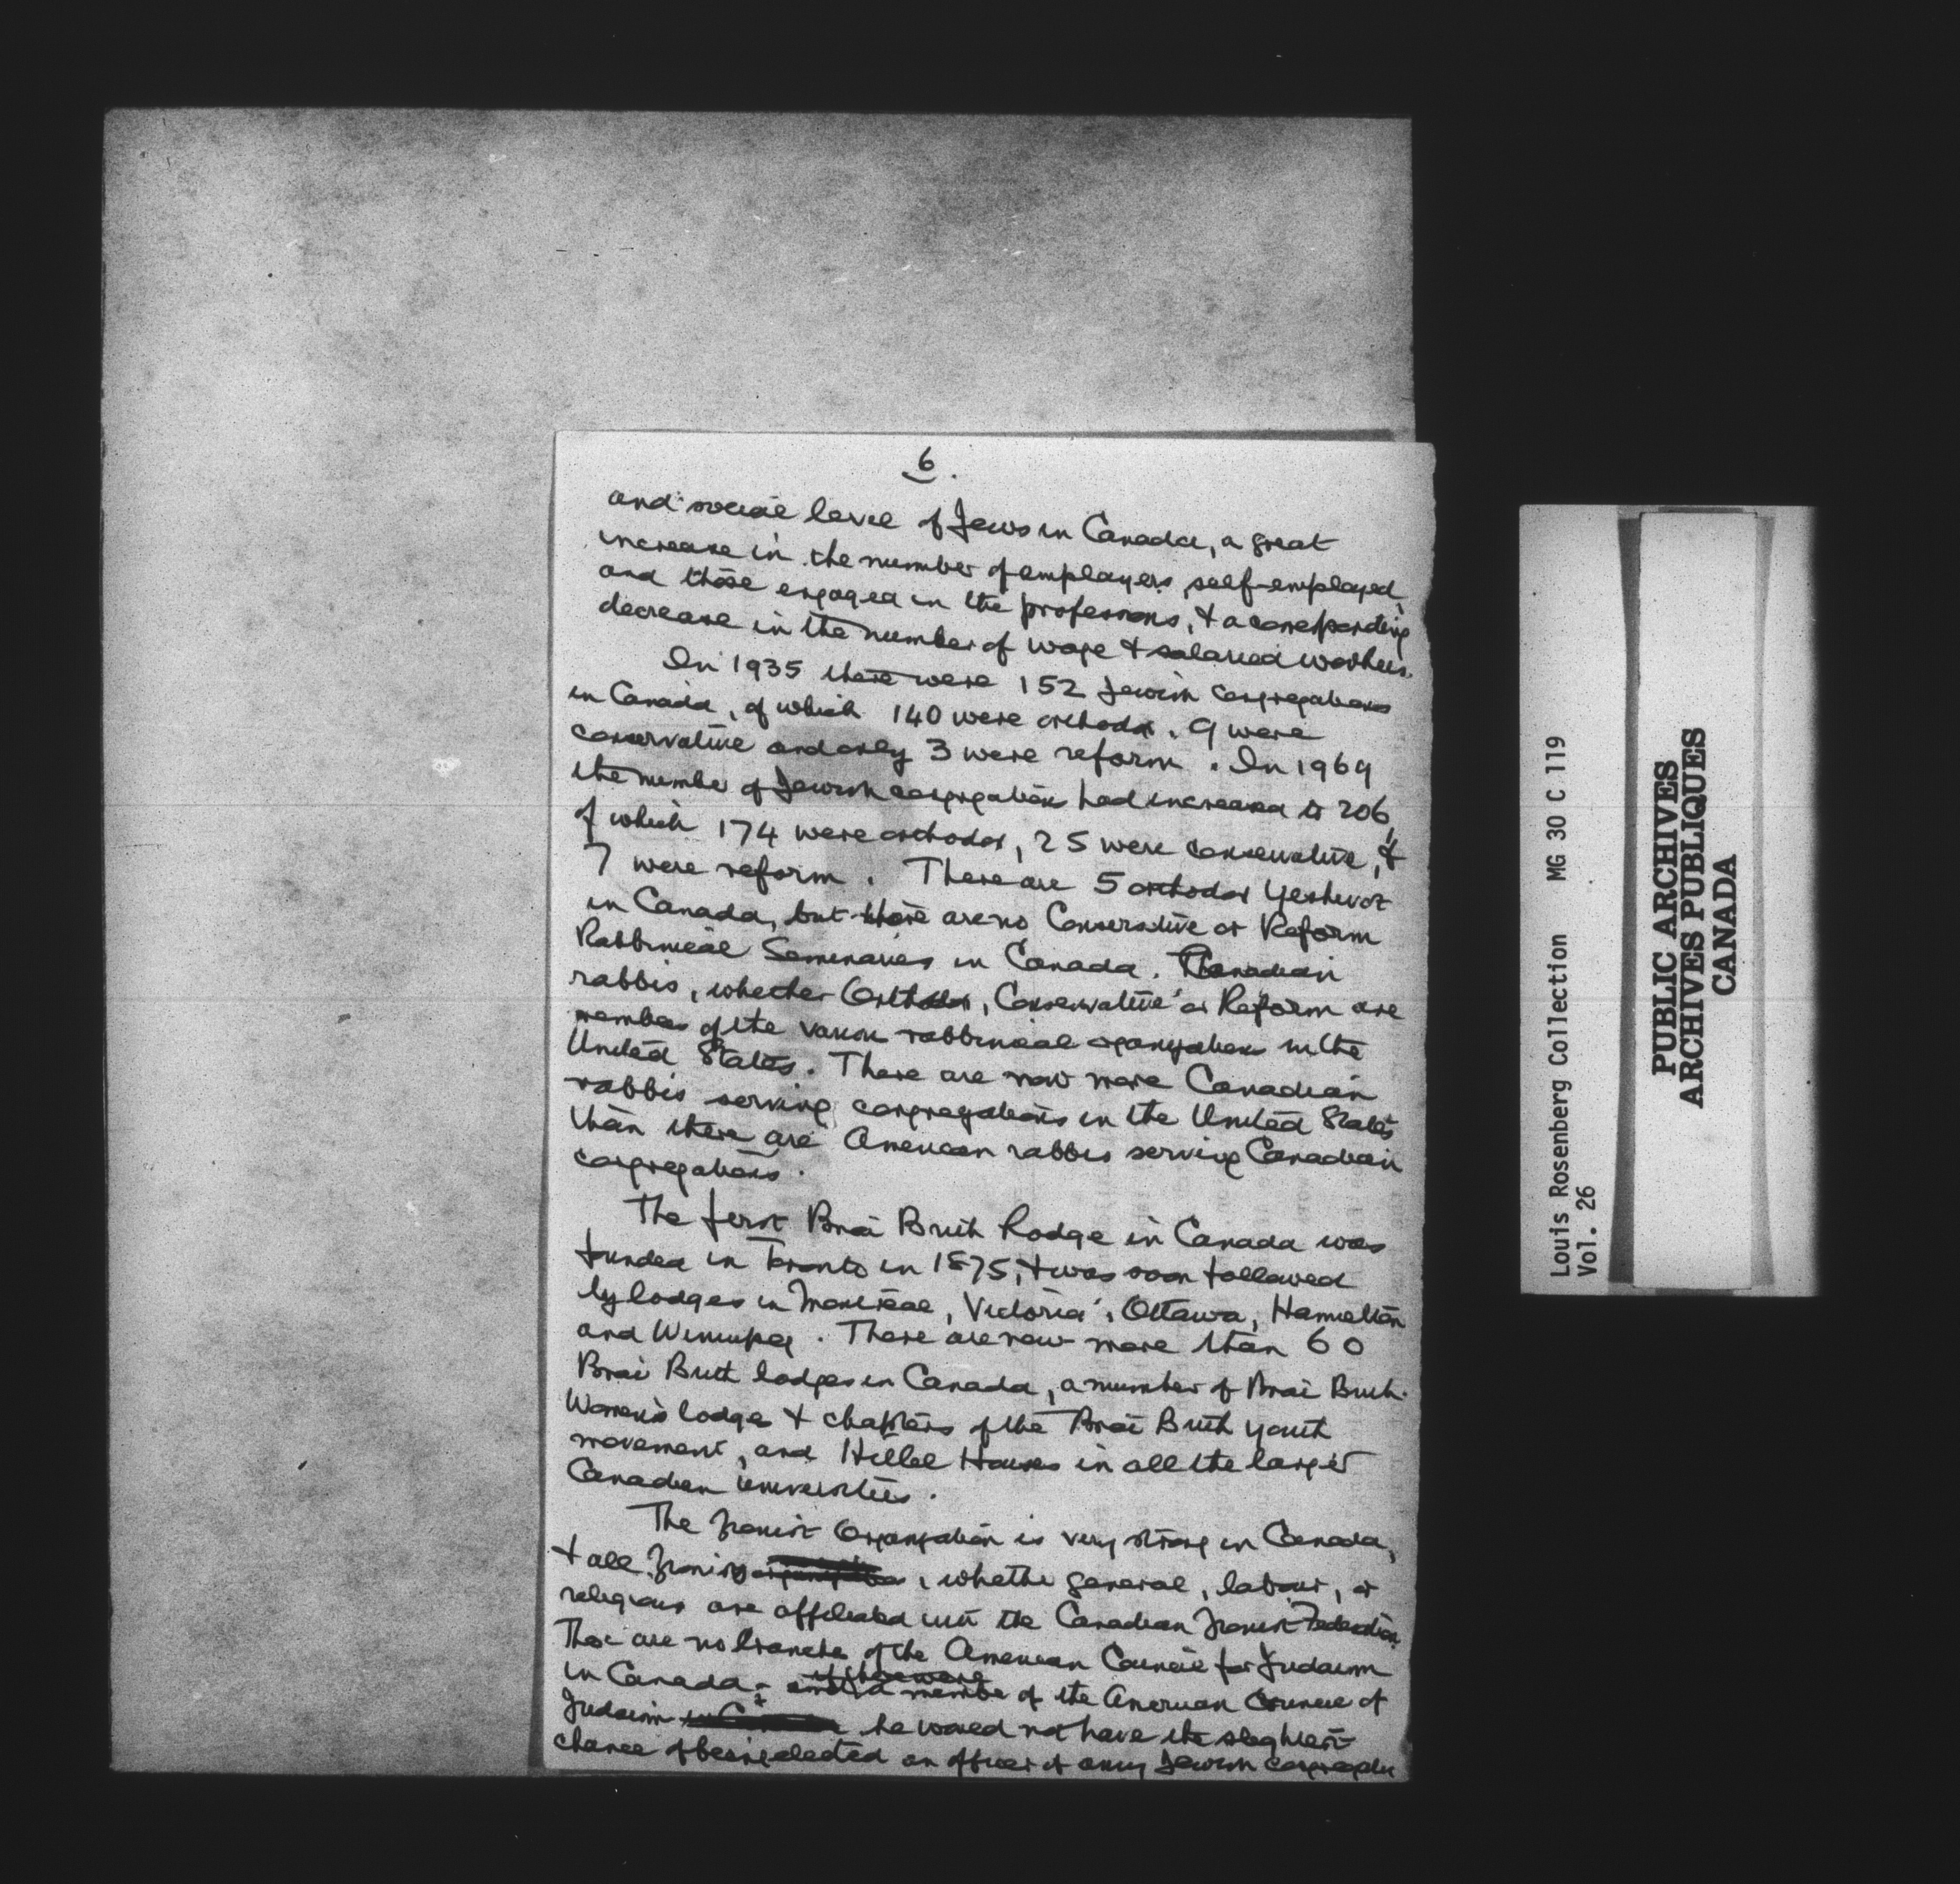 6.
and social level of Jews in Canada, a great
increase in the number of employers, self-employed,
and those engaged in the professions, & a corresponding
decrease in the number of wage & salaried workers.
In 1935 there were 152 Jewish congregations
in Canada, of which 140 were orthodox, 9 were
conservative and only 3 were reform. In 1969
the number of Jewish congregations had increased to 206,
of which 174 were orthodox, 25 were conservative, &
7 were reform. There are 5 orthodox Yeshivot
in Canada, but there are no Conservative or Reform
Rabbinical Seminaries in Canada. Canadian
rabbis, whether Orthodox, Conservative or Reform are
members of the various rabbinical organizations in the
United States. There are now more Canadian
rabbis serving congregations in the United States
than there are American rabbis serving Canadian
congregations.
The first Bnai Brith Lodge in Canada was
founded in Toronto in 1875, & was soon followed
by lodges in Montreal, Victoria, Ottawa, Hamilton
and Winnipeg. There are now more than 60
Bnai Brith lodges in Canada, a number of Bnai Brith
Women's lodges & chapters of the Bnai Brith youth
movement, and Hillel Houses in all the larger
Canadian universities.
The Zionist Organization is very strong in Canada,
& all Zionists, whether general, labour, or
religious are affiliated with the Canadian Zionist Federation.
There are no branches of the American Council for Judaism
in Canada - if there were
a member of the American Council of
Judaism he would not have the slightest
chance of being elected an officer of any Jewish
Louis Rosenberg Collection MG 30 C 119
Vol. 26
PUBLIC ARCHIVES
ARCHIVES PUBLIQUES
CANADA